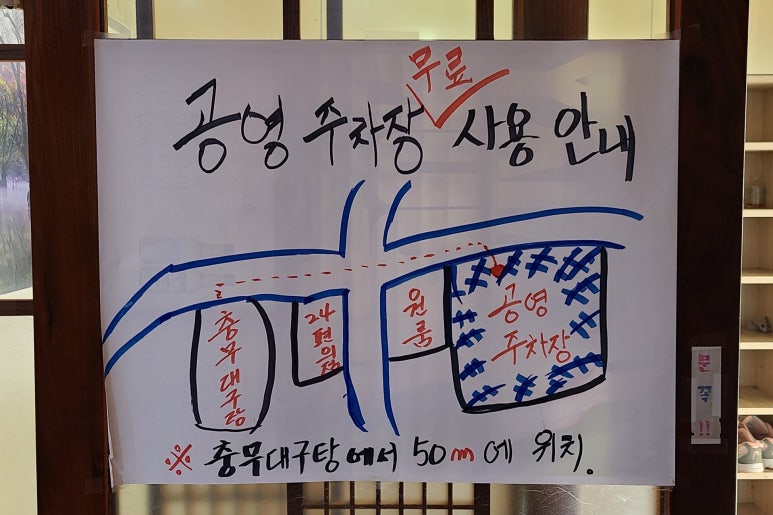 무료
공영 주차장 사용 안내
충무대구탕
24
편의점
원룸
공영
주차장
※ 충무대구탕에서 50m에 위치.